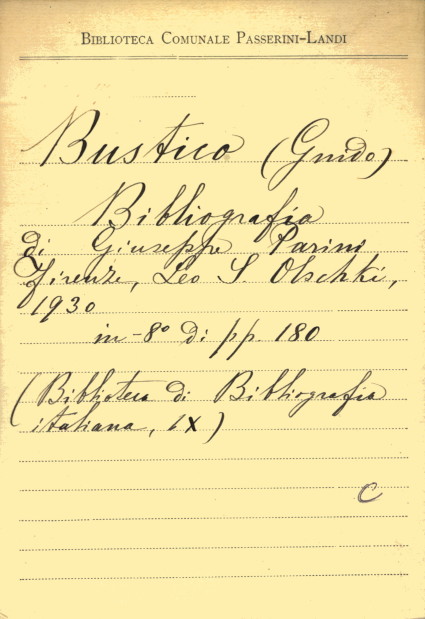 BIBLIOTECA COMUNALE PASSERINI-LANDI
Bustico (Guido)
Bibliografia
di Giuseppe Parini
Firenze, Leo S. Olschki,
1930
in-8º di pp. 180
(Biblioteca di Bibliografia
italiana, IX)
C